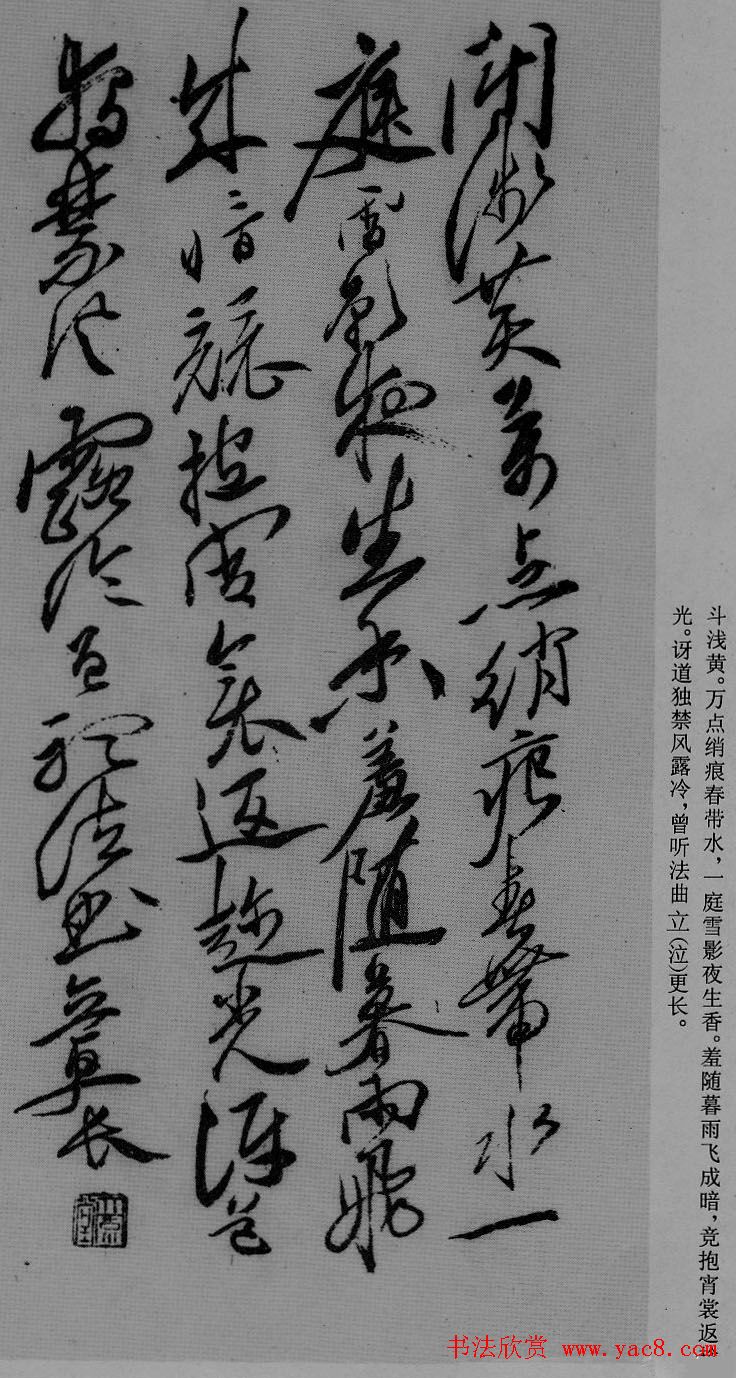 鬭淺黄萬点綃痕春帶水一
庭雪影夜生香羞随暮雨飛
成暗競抱宵裳返趂光訝道
獨禁風露冷曾聴法曲立更長
斗浅黄。万点绡痕春带水，一庭雪影夜生香。羞随暮雨飞成暗，竞抱宵裳返
光。讶道独禁风露冷，曾听法曲立（泣）更长。
书法欣赏 www.yac8.com